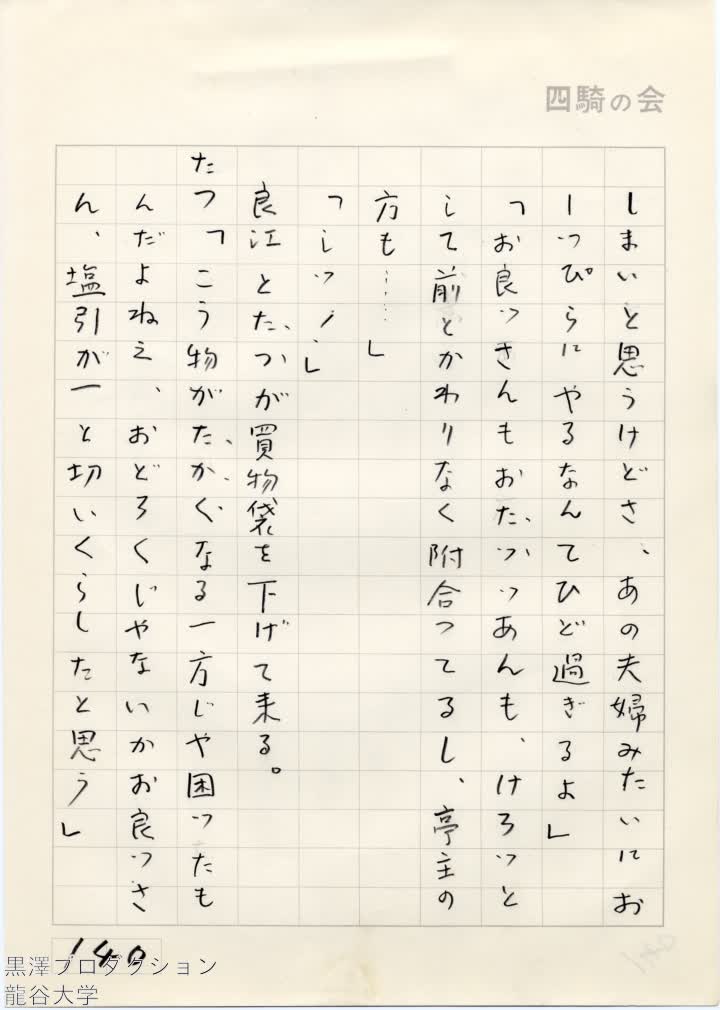 四騎の会
しまいと思うけどさ、あの夫婦みたいにお
ーっぴらにやるなんてひど過ぎるよ」
「お良っさんもおたつっあんも、けろっと
して前とかわりなく附合ってるし、亭主の
方も……」
「しッ！」
良江とたつが買物袋を下げて来る。
たつ「こう物がたかくなる一方じゃ困ったも
んだよねえ、おどろくじゃないかお良っさ
ん、塩引が一と切いくらしたと思う」
140
黒澤プロダクション
龍谷大学